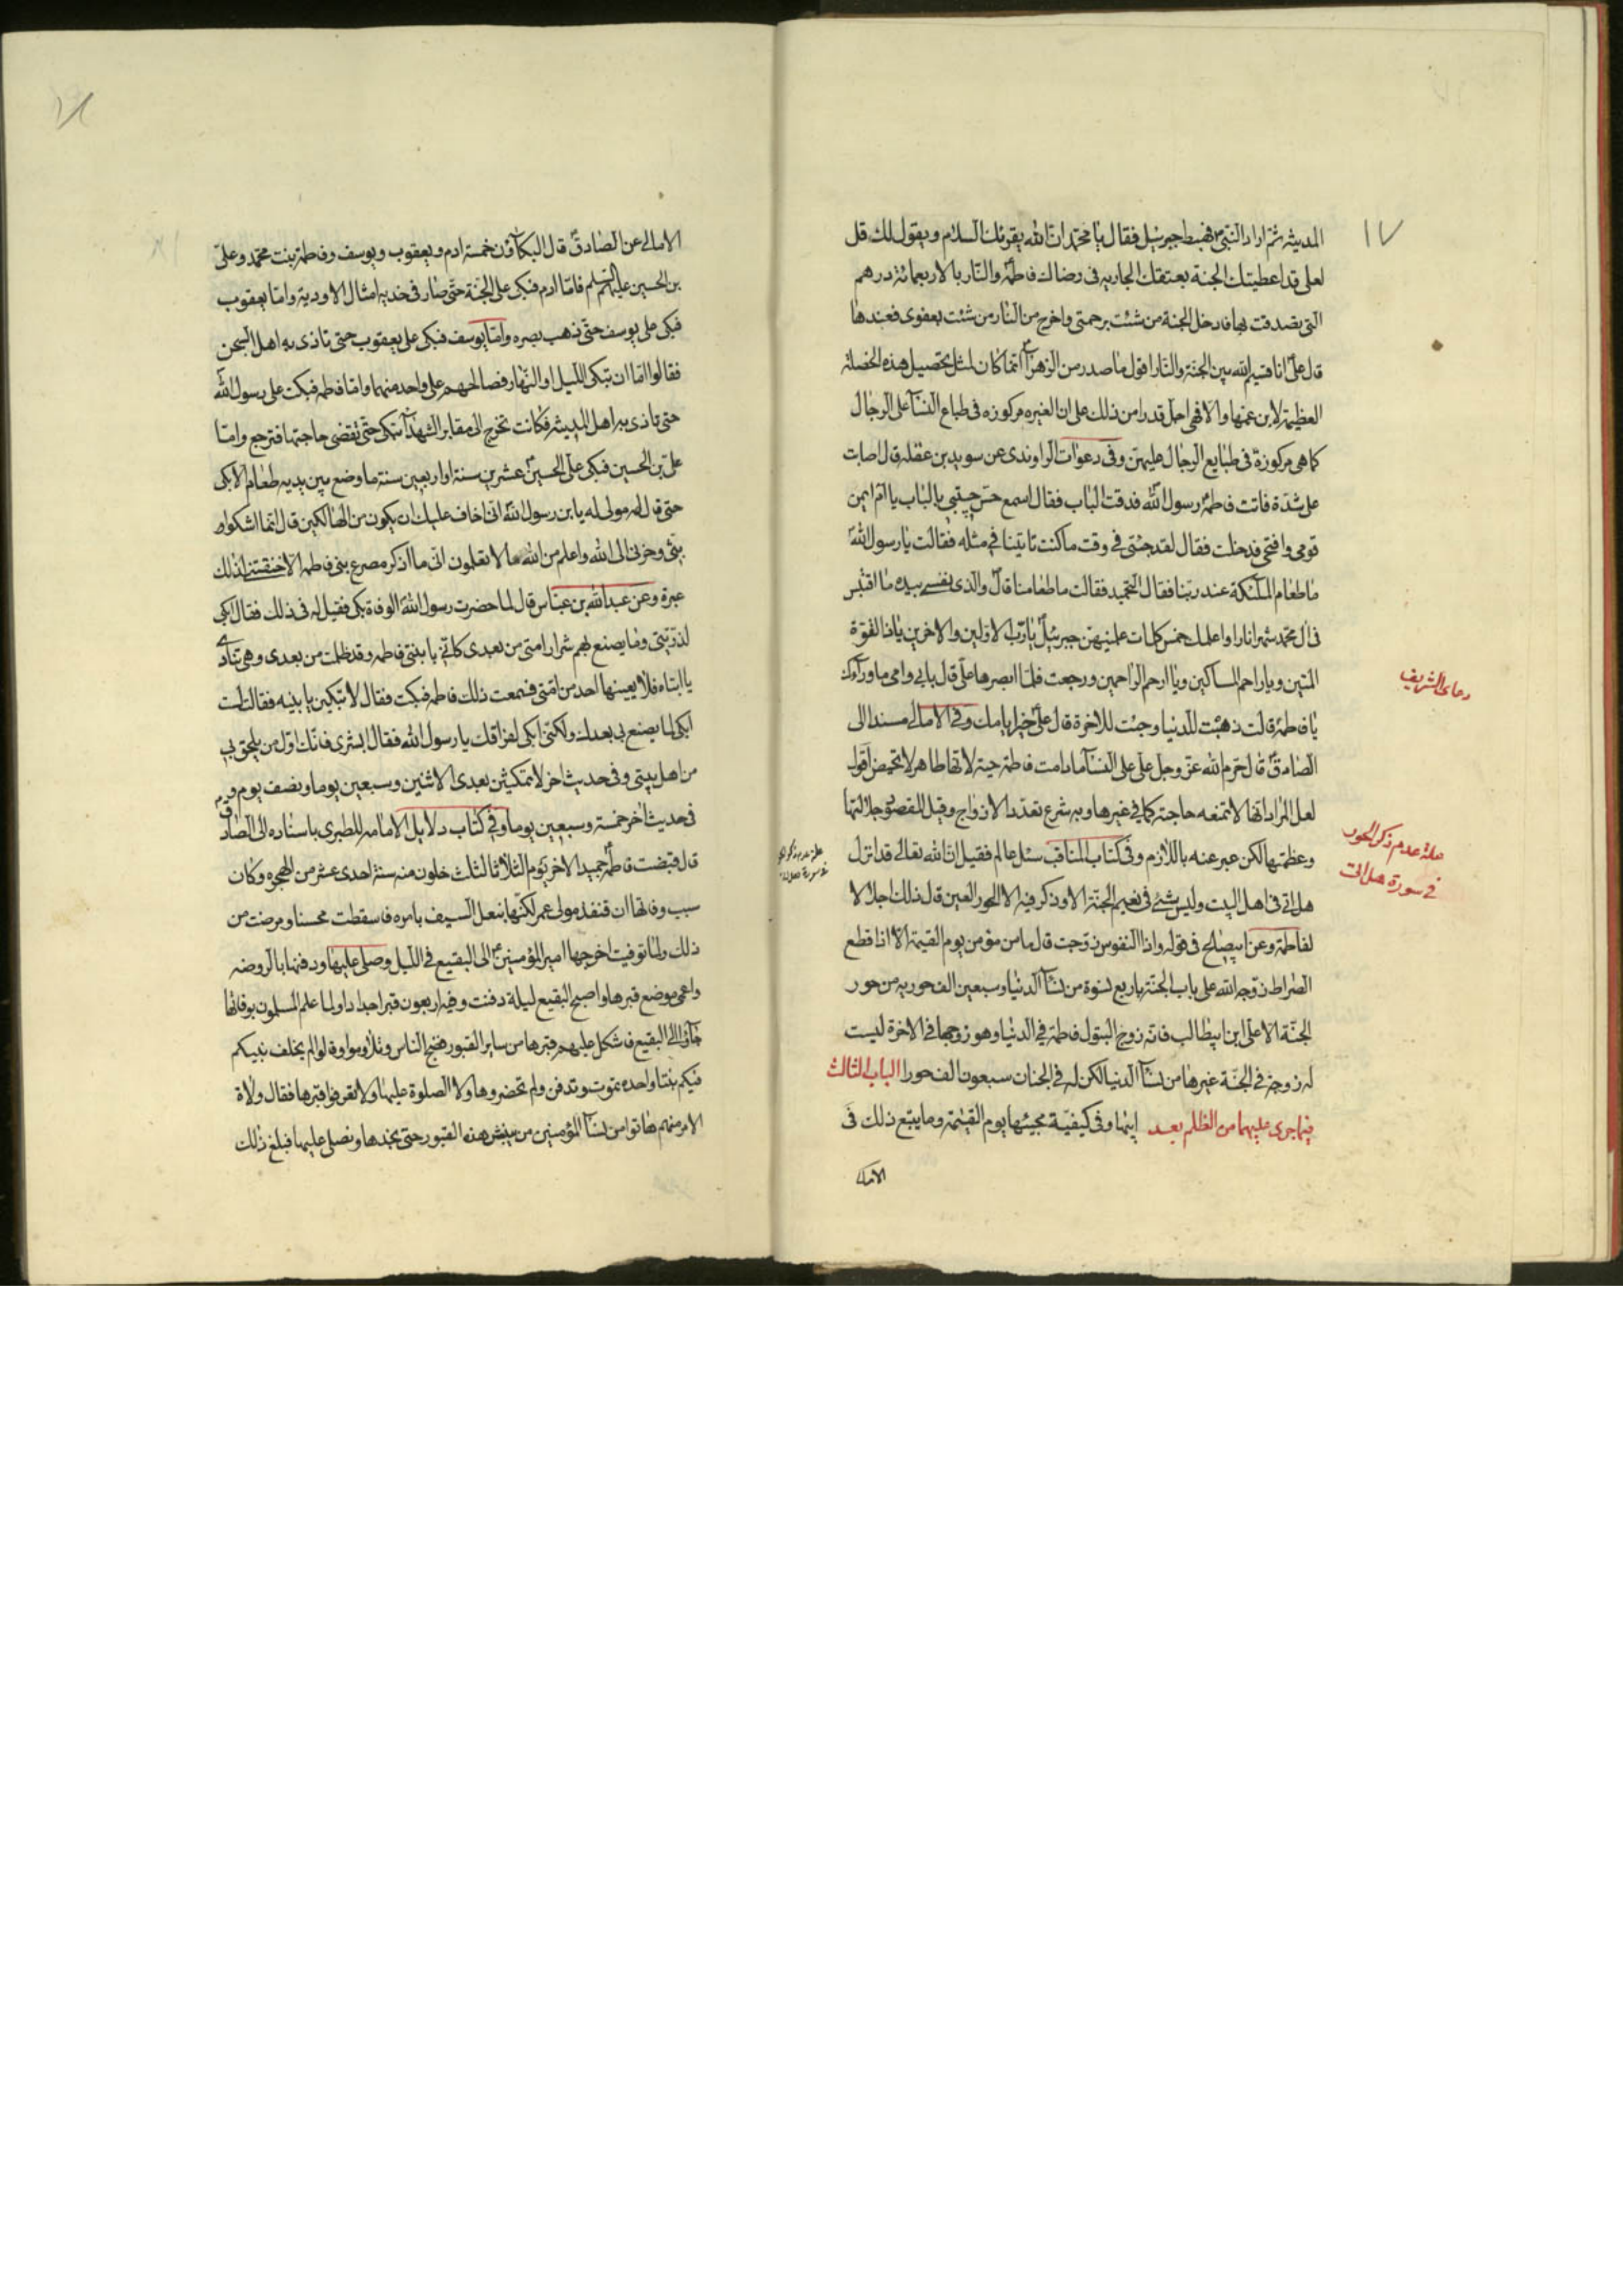 ١٧
المدينه ثم اراد النبي فهبط جبرئيل فقال يا محمد ان الله يقرئك السلام ويقول لك قل
لعلي قد اعطيتك الجنة بعتقك الجاريه في رضا فاطمة والنار بالاربعمائة درهم
التي تصدقت بها فادخل الجنة من شئت برحمتي واخرج من النار من شئت بعفوي فعندها
قال علي انا قسيم الله بين الجنة والنار اقول ما صدر من الزهرا انما كان لمثل تحصيل هذه الخصلة
العظيمة لابن عمها والا فهي اجل قدرا من ذلك على ان الغيره مركوزه في طباع النسآ على الرجال
كما هي مركوزة في طبايع الرجال عليهن وفي دعوات الراوندي عن سويد بن غفله قال اصابت
علي شدة فاتت فاطمة رسول الله فدقت الباب فقال اسمع حس حبيبي بالباب يا ام ايمن
قومي وافتحي فدخلت فقال لقد جئتي في وقت ما كنت تاتينا في مثله فقالت يا رسول الله
ما طعام الملئكة عند ربنا فقال التحميد فقالت ما طعامنا قال والذي نفسي بيده ما اقتبس
في ال محمد شهرا نارا واعلمك خمس كلمات علمنيهن جبرئيل يا رب الاولين والاخرين يا ذا القوة
المتين ويا راحم المساكين ويا ارحم الراحمين ورجعت فلما ابصرها علي قال بابي وامي ما ورآءك
يا فاطمة قالت ذهبت للدنيا وجئت للاخرة قال علي خير ايامك وفي الامالي مسندا الى
الصادق قال حرم الله عز وجل على علي النسآ ما دامت فاطمة حية لانها طاهر لا تحيض اقول
لعل المراد انها لا تمنعه حاجته كما في غيرها وبه شرع تعدد الازواج وقيل المقصود جلالتها
وعظمتها لكن عبر عنه باللازم وفي كتاب المناقب سئل عالم فقيل ان الله تعالى قد انزل
هل اتى في اهل البيت وليس شئ في نعيم الجنة الا وذكر فيه الا الحور العين قال ذلك اجلالا
لفاطمة وعن ابيصالح في قوله واذا النفوس زوجت قال ما من مؤمن يوم القيمة الا اذا قطع
الصراط زوجه الله على باب الجنة باربع نسوة من نسآ الدنيا وسبعين الف حوريه من حور
الجنة الا علي ابن ابيطالب فانه زوج البتول فاطمة في الدنيا وهو زوجها في الاخرة ليست
له زوجة في الجنة غيرها من نسآ الدنيا لكن له في الجنان سبعون الف حورا الباب الثالث
فيما جرى عليهما من الظلم بعد ابيها وفي كيفية مجيئها يوم القيمة وما يتبع ذلك في
الامالي
دعاى الشريف
علة عدم ذكر الحور
في سورة هل اتى
الامالي عن الصادق قال البكآؤن خمسة ادم ويعقوب ويوسف وفاطمة بنت محمد وعلي
بن الحسين عليهم السلم فاما ادم فبكى على الجنة حتى صار في خديه امثال الاودية واما يعقوب
فبكى على يوسف حتى ذهب بصره واما يوسف فبكى على يعقوب حتى تاذى به اهل السجن
فقالوا اما ان تبكي الليل او النهار فصالحهم على واحد منهما واما فاطمه فبكت على رسول الله
حتى تاذى به اهل المدينه فكانت تخرج الى مقابر الشهدآ تبكي حتى تقضي حاجتها فترجع واما
علي بن الحسين فبكى على الحسين عشرين سنة او اربعين سنة ما وضع بين يديه طعام الا بكى
حتى قال له مولى له يا بن رسول الله اني اخاف عليك ان يكون من الهالكين قال انما اشكوا
بثي وحزني الى الله واعلم من الله ما لا تعلمون اني ما اذكر مصرع بني فاطمه الا خنقتني لذلك
عبرة وعن عبد الله بن عباس قال لما حضرت رسول الله الوفاة بكى فقيل له في ذلك فقال ابكي
لذريتي وما يصنع بهم شرار امتي من بعدي كاني بابنتي فاطمه وقد ظلمت من بعدي وهي تنادي
يا ابتاه فلا يعينها احد من امتي فسمعت ذلك فاطمه فبكت فقال لا تبكين يا بنيه فقالت لست
ابكي لما يصنع بي بعدك ولكني ابكي لفراقك يا رسول الله فقال ابشري فانك اول من يلحق بي
من اهل بيتي وفي حديث اخر لا تمكثين بعدي الا اثنين وسبعين يوما ونصف يوم و
في حديث اخر خمسة وسبعين يوما وفي كتاب دلايل الامامه للطبري باسناده الى الصادق
قال قبضت فاطمة جميد الاخر يوم الثلاثا لثلث خلون منه سنة احدى عشر من الهجره وكان
سبب وفاتها ان قنفذ مولى عمر لكزها بنعل السيف بامره فاسقطت محسنا ومرضت من
ذلك ولما توفيت اخرجها امير المؤمنين الى البقيع في الليل وصلى عليها ودفنها بالروضه
واعمى موضع قبرها واصبح البقيع ليلة دفنت وفيه اربعون قبرا جدادا ولما علم المسلمون بوفاتها
جآؤا الى البقيع فاشكل عليهم قبرها من ساير القبور فضج الناس وتلاوموا وقالوا لم يخلف نبيكم
فيكم بنتا واحده تموت وتدفن ولم تحضروها ولا الصلوة عليها ولا تعرفوا قبرها فقال ولاة
الامر منهم هاتوا من نسآ المؤمنين من ينبش هذه القبور حتى نجدها ونصلي عليها فبلغ ذلك